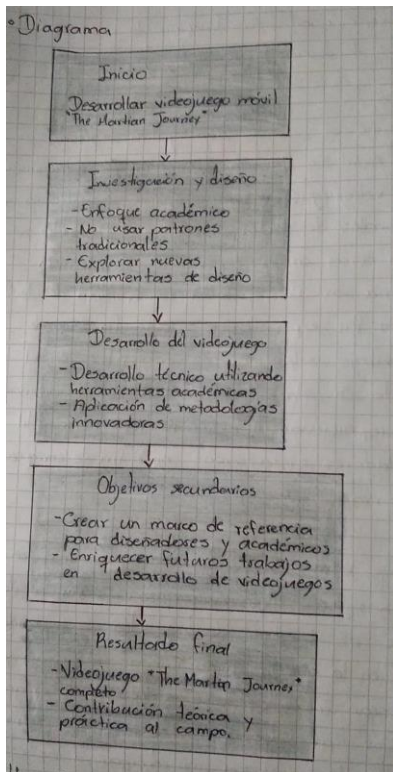 • Diagrama
Inicio
Desarrollar videojuego móvil
"The Martian Journey"
Investigación y diseño
- Enfoque académico
- No usar patrones
tradicionales
- Explorar nuevas
herramientas de diseño
Desarrollo del videojuego
- Desarrollo técnico utilizando
herramientas académicas
- Aplicación de metodologías
innovadoras
Objetivos secundarios
- Crear un marco de referencia
para diseñadores y académicos
- Enriquecer futuros trabajos
en desarrollo de videojuegos
Resultado final
- Videojuego "The Martan Journey"
completo
- Contribución teórica y
práctica al campo.